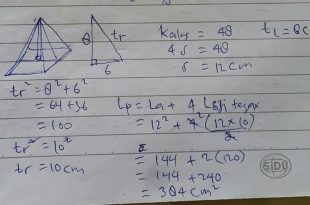 8
tr
6
kalas = 48
4s = 48
s = 12 cm
tr² = 8² + 6²
= 64 + 36
= 100
tr² = 10²
tr = 10 cm
Lp = La + 4 Lsgi tegak
= 12² + 4² (12 x 10) / 2
= 144 + 2 (120)
= 144 + 240
= 384 cm²
SiDU